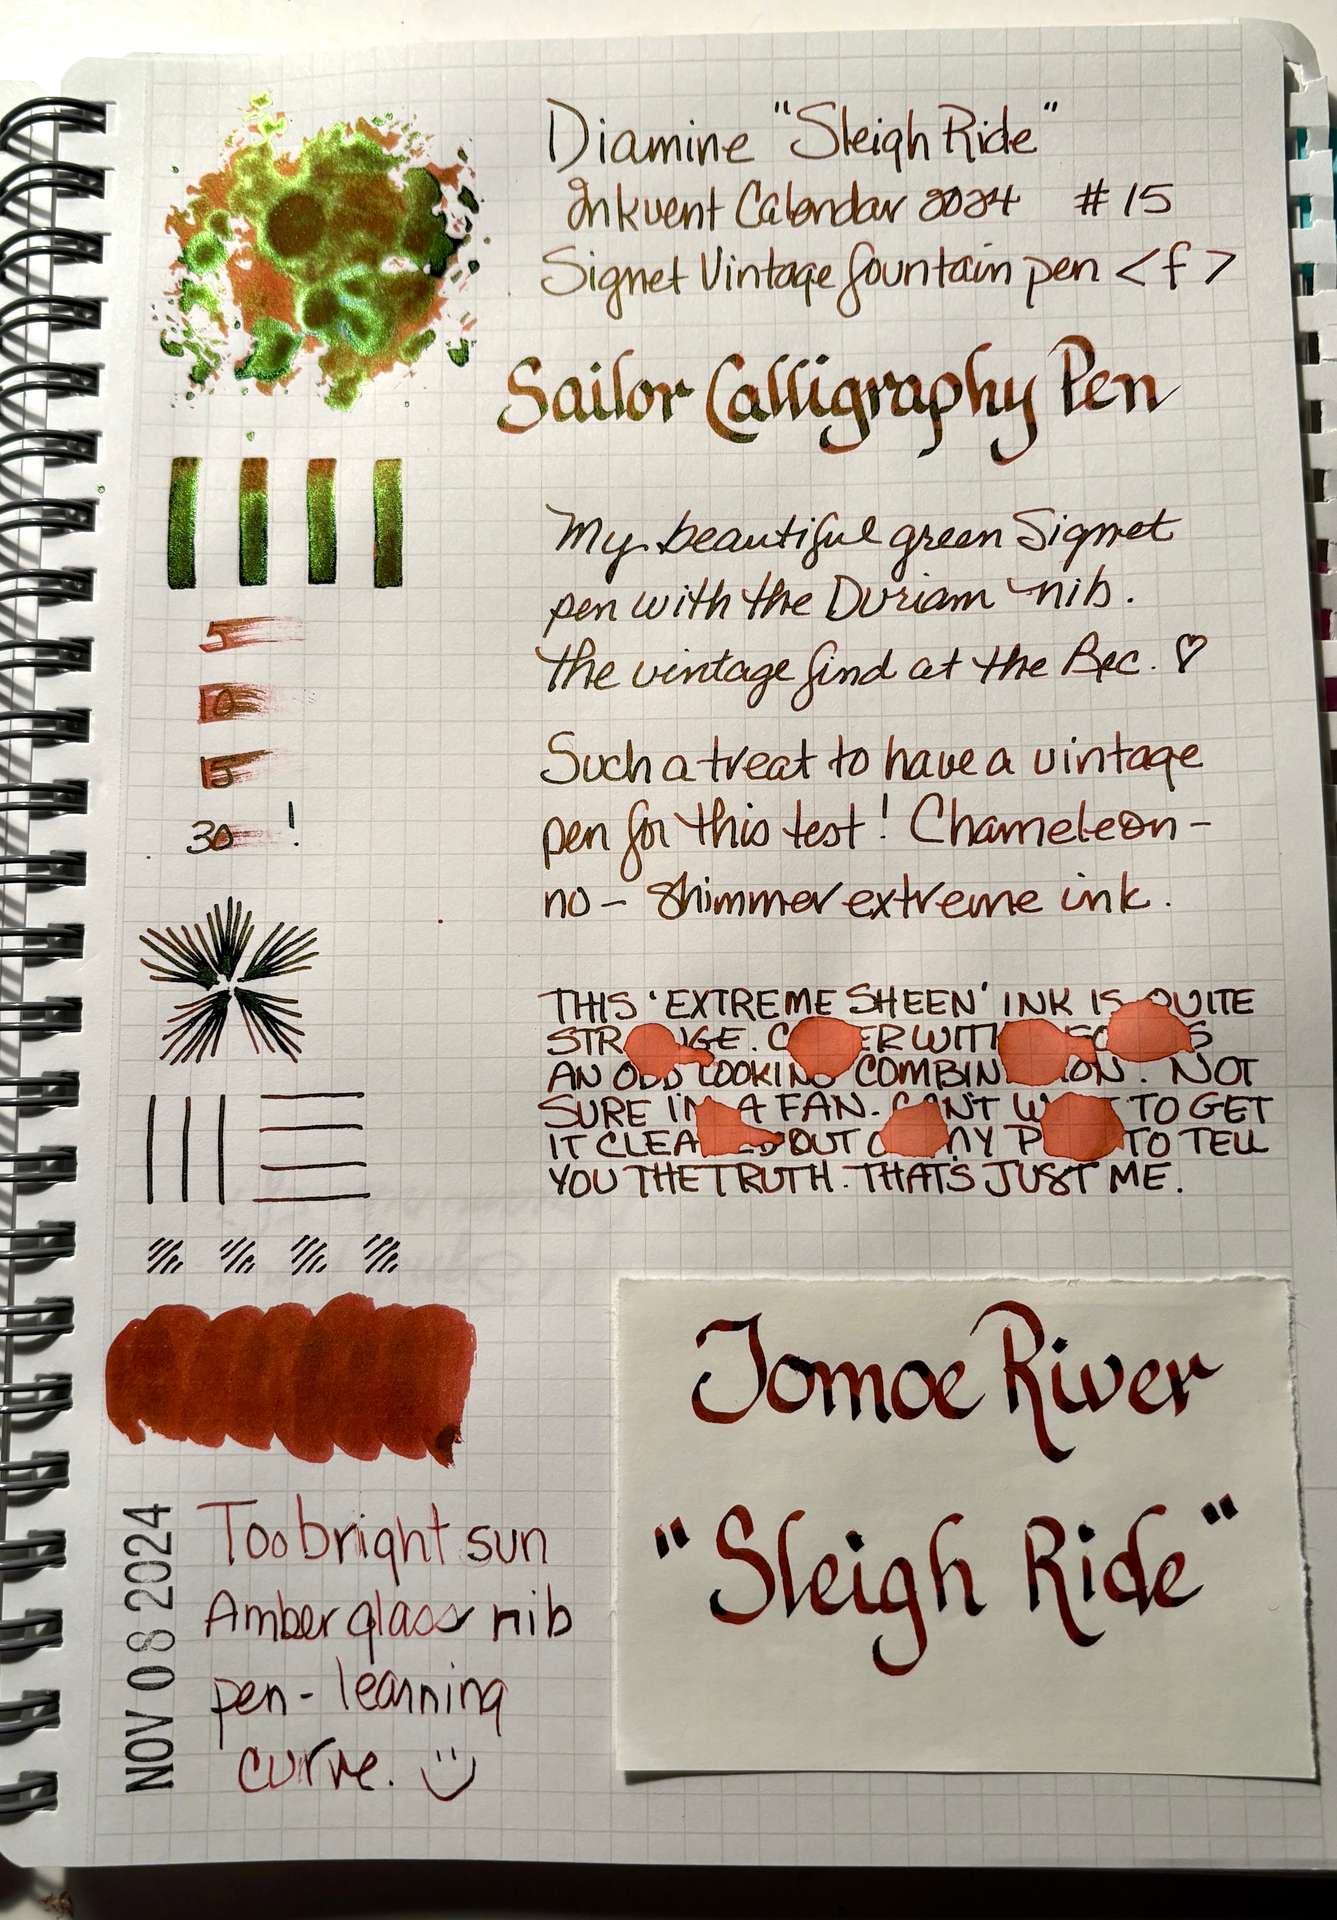 Diamine "Sleigh Ride"
Inkvent Calendar 2024 #15
Signet Vintage fountain pen <f>
Sailor Calligraphy Pen
My beautiful green Signet
pen with the Duriam nib.
the vintage find at the Rec. ♡
Such a treat to have a vintage
pen for this test! Chameleon-
no- Shimmer extreme ink.
5
10
15
30 !
THIS 'EXTREME SHEEN' INK IS QUITE
STRANGE. COPPER WITH S
AN ODD LOOKING COMBINATION. NOT
SURE I'M A FAN. CAN'T WAIT TO GET
IT CLEANED OUT OF MY PEN TO TELL
YOU THE TRUTH. THAT'S JUST ME.
Too bright sun
Amber glass nib
pen- learning
curve.
NOV 08 2024
Tomoe River
"Sleigh Ride"